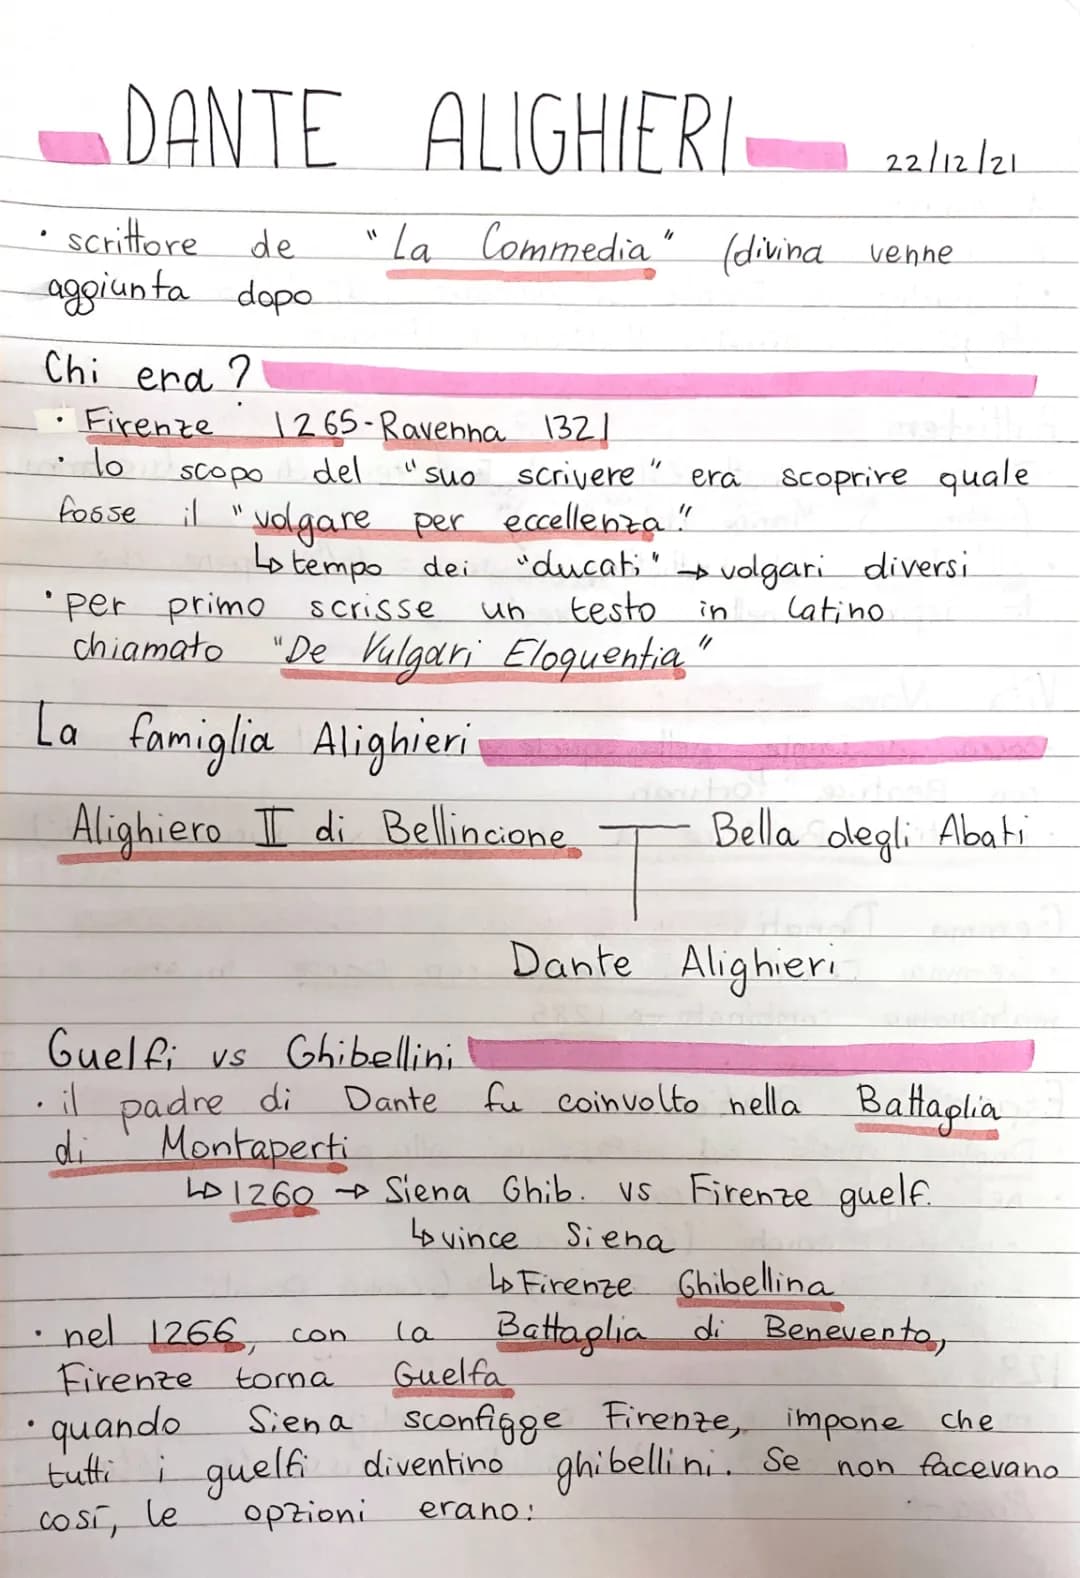 DANTE ALIGHIERI 22/12/21
• scrittore de "La Commedia" (divina venne
aggiunta dopo
Chi era?
• Firenze 1265-Ravenna 1321
• lo scopo del "suo scrivere" era scoprire quale
fosse il "volgare per eccellenza".
↳ tempo dei "ducati" → volgari diversi
• per primo scrisse un testo in latino
chiamato "De Vulgari Eloquentia"
La famiglia Alighieri
Alighiero II di Bellincione Bella degli Abati
Dante Alighieri
Guelfi vs Ghibellini
• il padre di Dante fu coinvolto nella Battaglia
di Montaperti
↳ 1260 → Siena Ghib. vs Firenze guelf.
↳ vince Siena
↳ Firenze Ghibellina
• nel 1266, con la Battaglia di Benevento,
Firenze torna Guelfa
• quando Siena sconfigge Firenze, impone che
tutti i guelfi diventino ghibellini. Se non facevano
così, le opzioni erano: